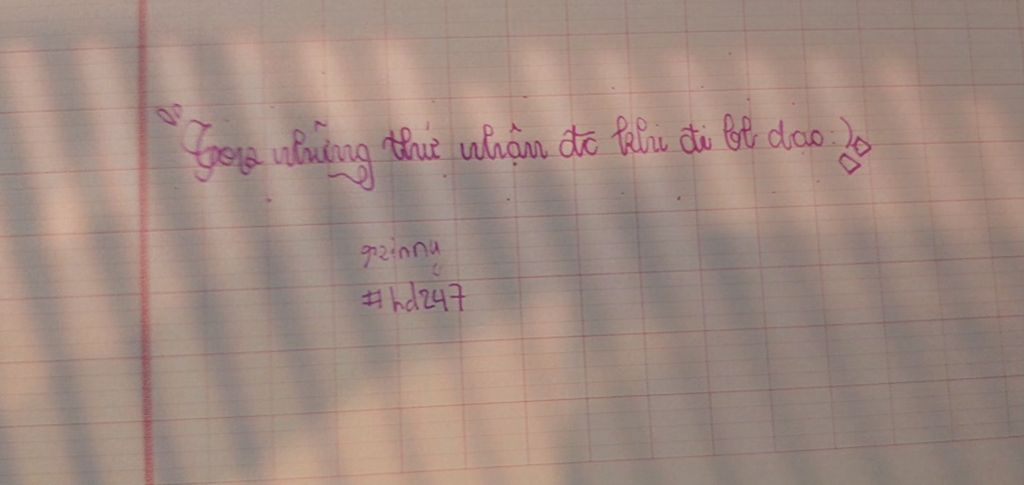 những thứ nhận đc khi đi bt dạo :)
grinnu
#hd247